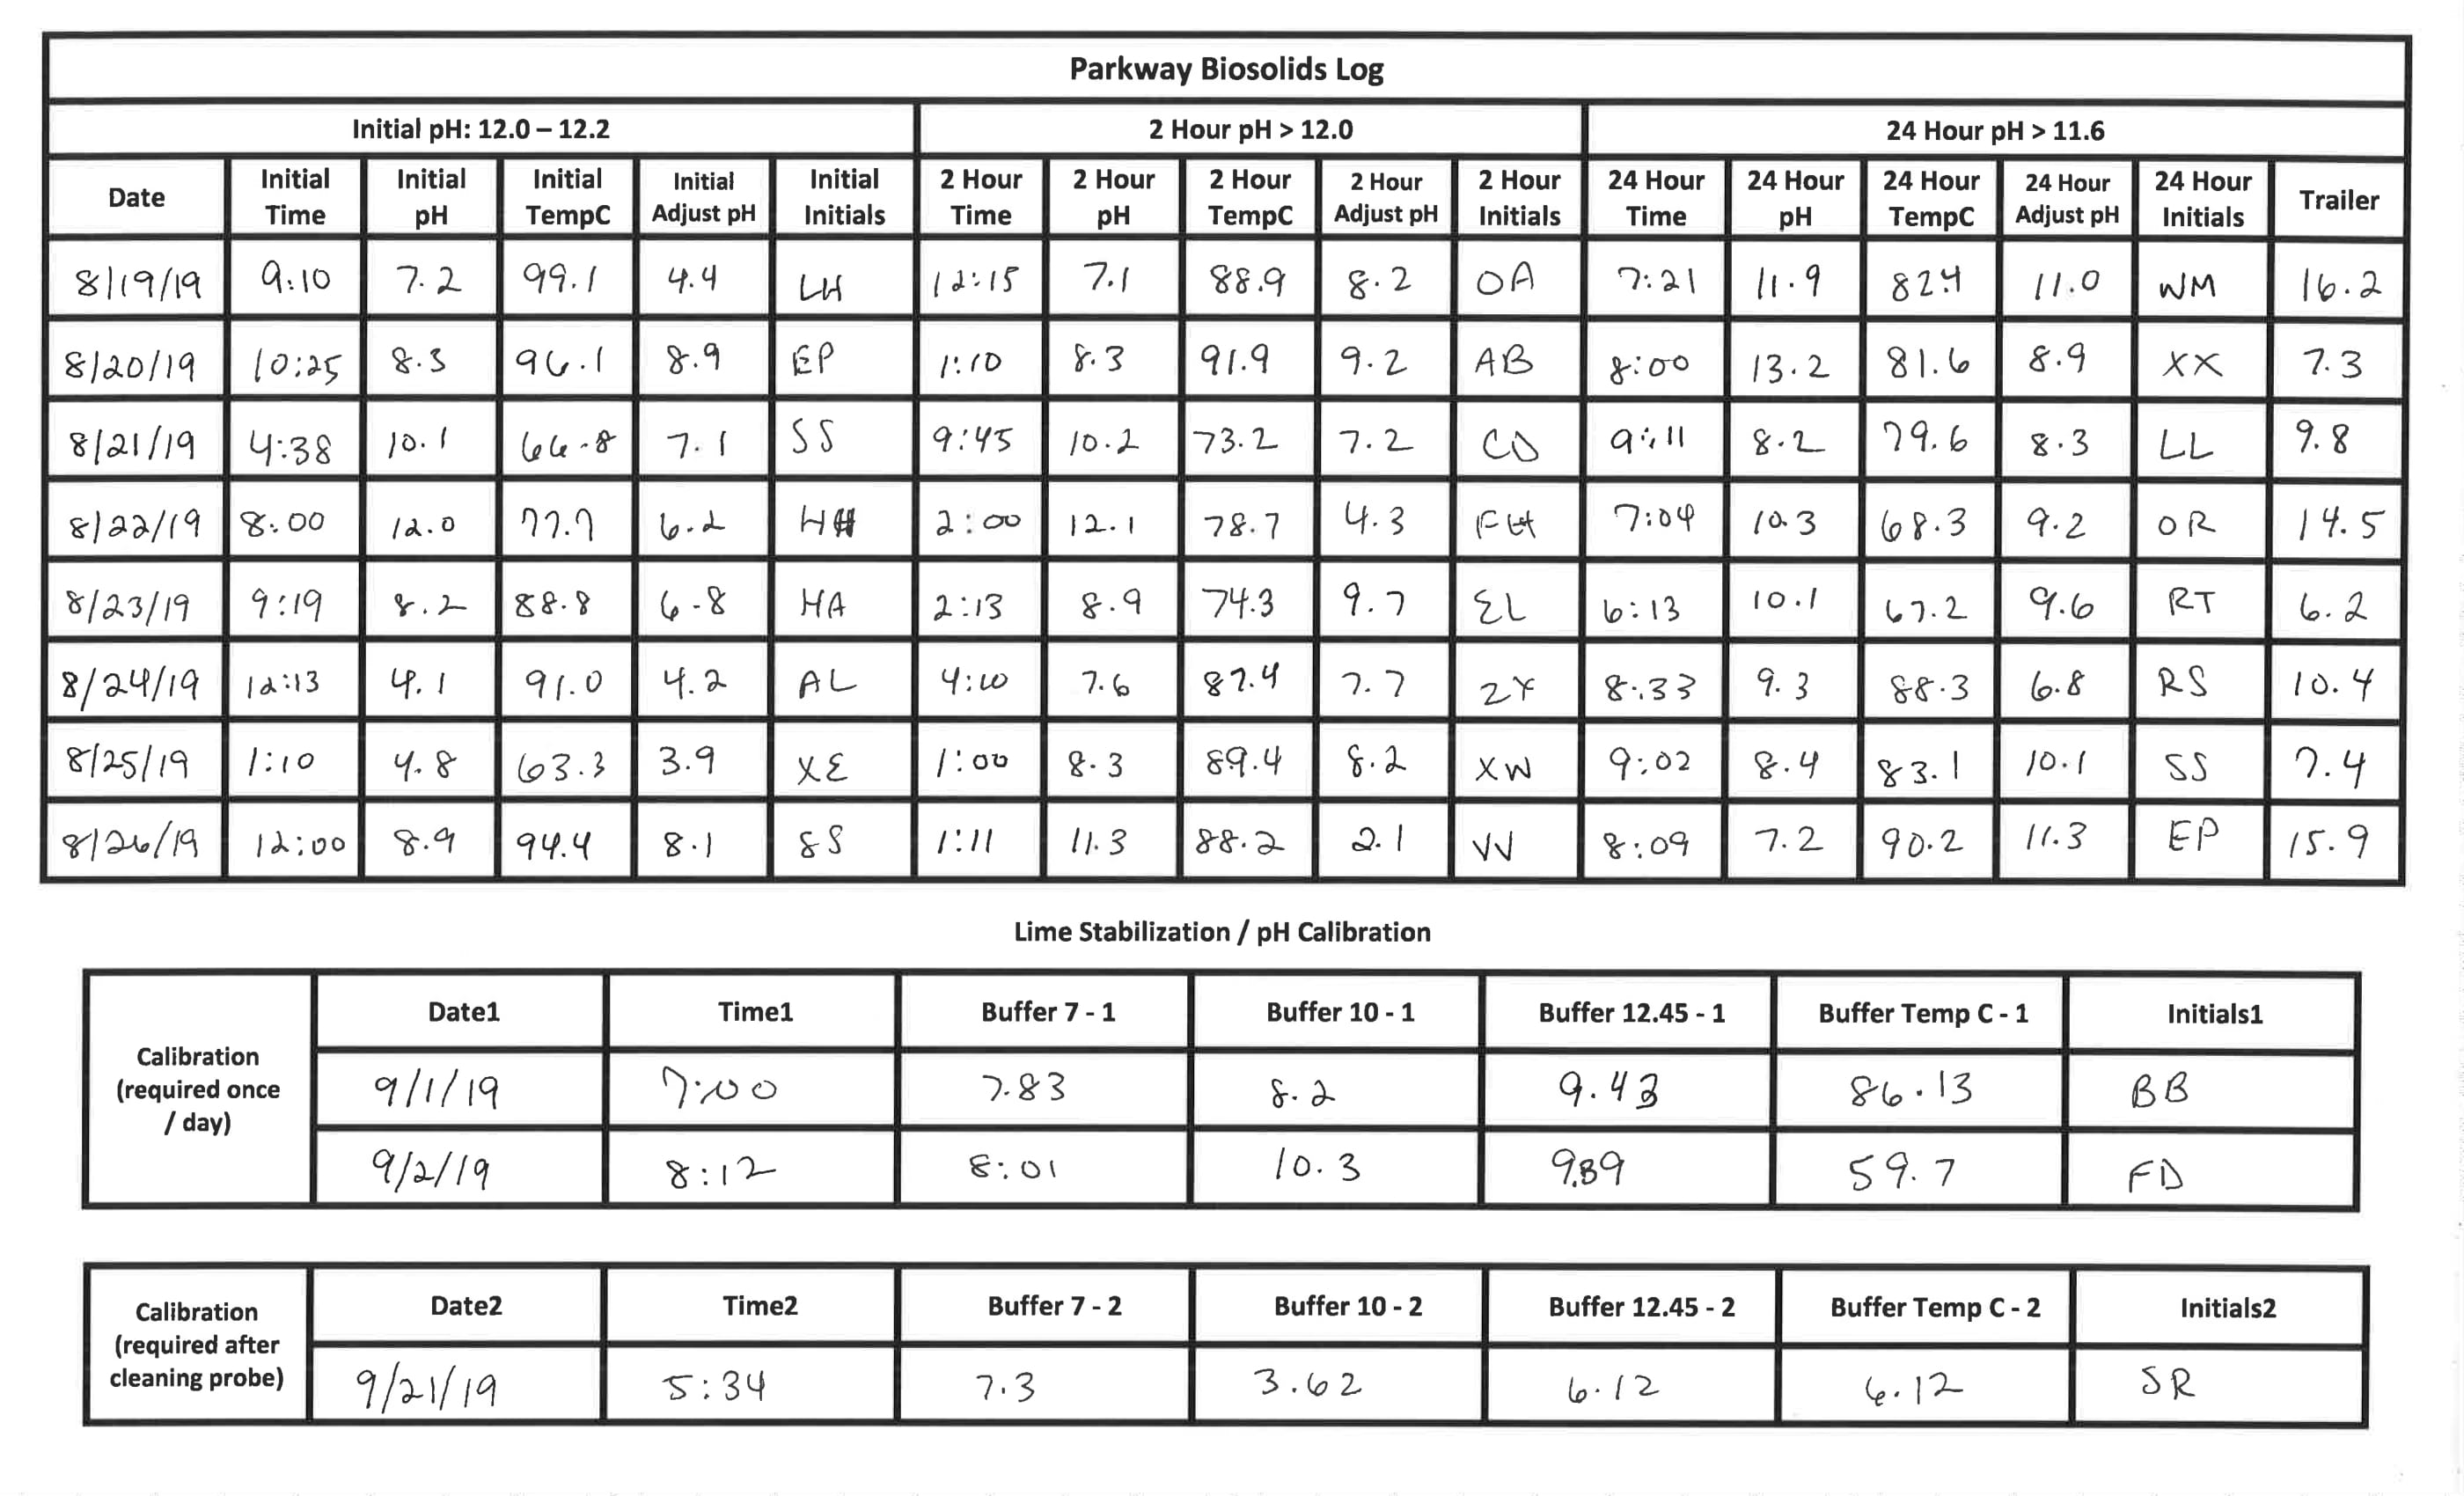 Parkway Biosolids Log
Initial pH: 12.0 – 12.2 2 Hour pH > 12.0 24 Hour pH > 11.6
Date Initial Time Initial pH Initial TempC Initial Adjust pH Initial Initials 2 Hour Time 2 Hour pH 2 Hour TempC 2 Hour Adjust pH 2 Hour Initials 24 Hour Time 24 Hour pH 24 Hour TempC 24 Hour Adjust pH 24 Hour Initials Trailer
8/19/19 9:10 7.2 99.1 4.4 LH 12:15 7.1 88.9 8.2 OA 7:21 11.9 82.4 11.0 WM 16.2
8/20/19 10:25 8.3 96.1 8.9 EP 1:10 8.3 91.9 9.2 AB 8:00 13.2 81.6 8.9 XX 7.3
8/21/19 4:38 10.1 66.8 7.1 SS 9:45 10.2 73.2 7.2 CD 9:11 8.2 79.6 8.3 LL 9.8
8/22/19 8:00 12.0 77.7 6.2 2:00 12.1 78.7 4.3 FH 7:04 10.3 68.3 9.2 OR 14.5
8/23/19 9:19 8.2 88.8 6.8 HA 2:13 8.9 74.3 9.7 EL 6:13 10.1 67.2 9.6 RT 6.2
8/24/19 12:13 4.1 91.0 4.2 AL 4:10 7.6 87.4 7.7 ZY 8:33 9.3 88.3 6.8 RS 10.4
8/25/19 1:10 4.8 63.3 3.9 XE 1:00 8.3 89.4 8.2 XW 9:02 8.4 83.1 10.1 SS 7.4
8/26/19 12:00 8.9 94.4 8.1 SS 1:11 11.3 88.2 2.1 VV 8:09 7.2 90.2 11.3 EP 15.9
Lime Stabilization / pH Calibration
Calibration (required once / day)
Date1 Time1 Buffer 7 - 1 Buffer 10 - 1 Buffer 12.45 - 1 Buffer Temp C - 1 Initials1
9/1/19 7:00 7.83 8.2 9.43 86.13 BB
9/2/19 8:12 8:01 10.3 9.89 59.7 FD
Calibration (required after cleaning probe)
Date2 Time2 Buffer 7 - 2 Buffer 10 - 2 Buffer 12.45 - 2 Buffer Temp C - 2 Initials2
9/21/19 5:34 7.3 3.62 6.12 6.12 SR